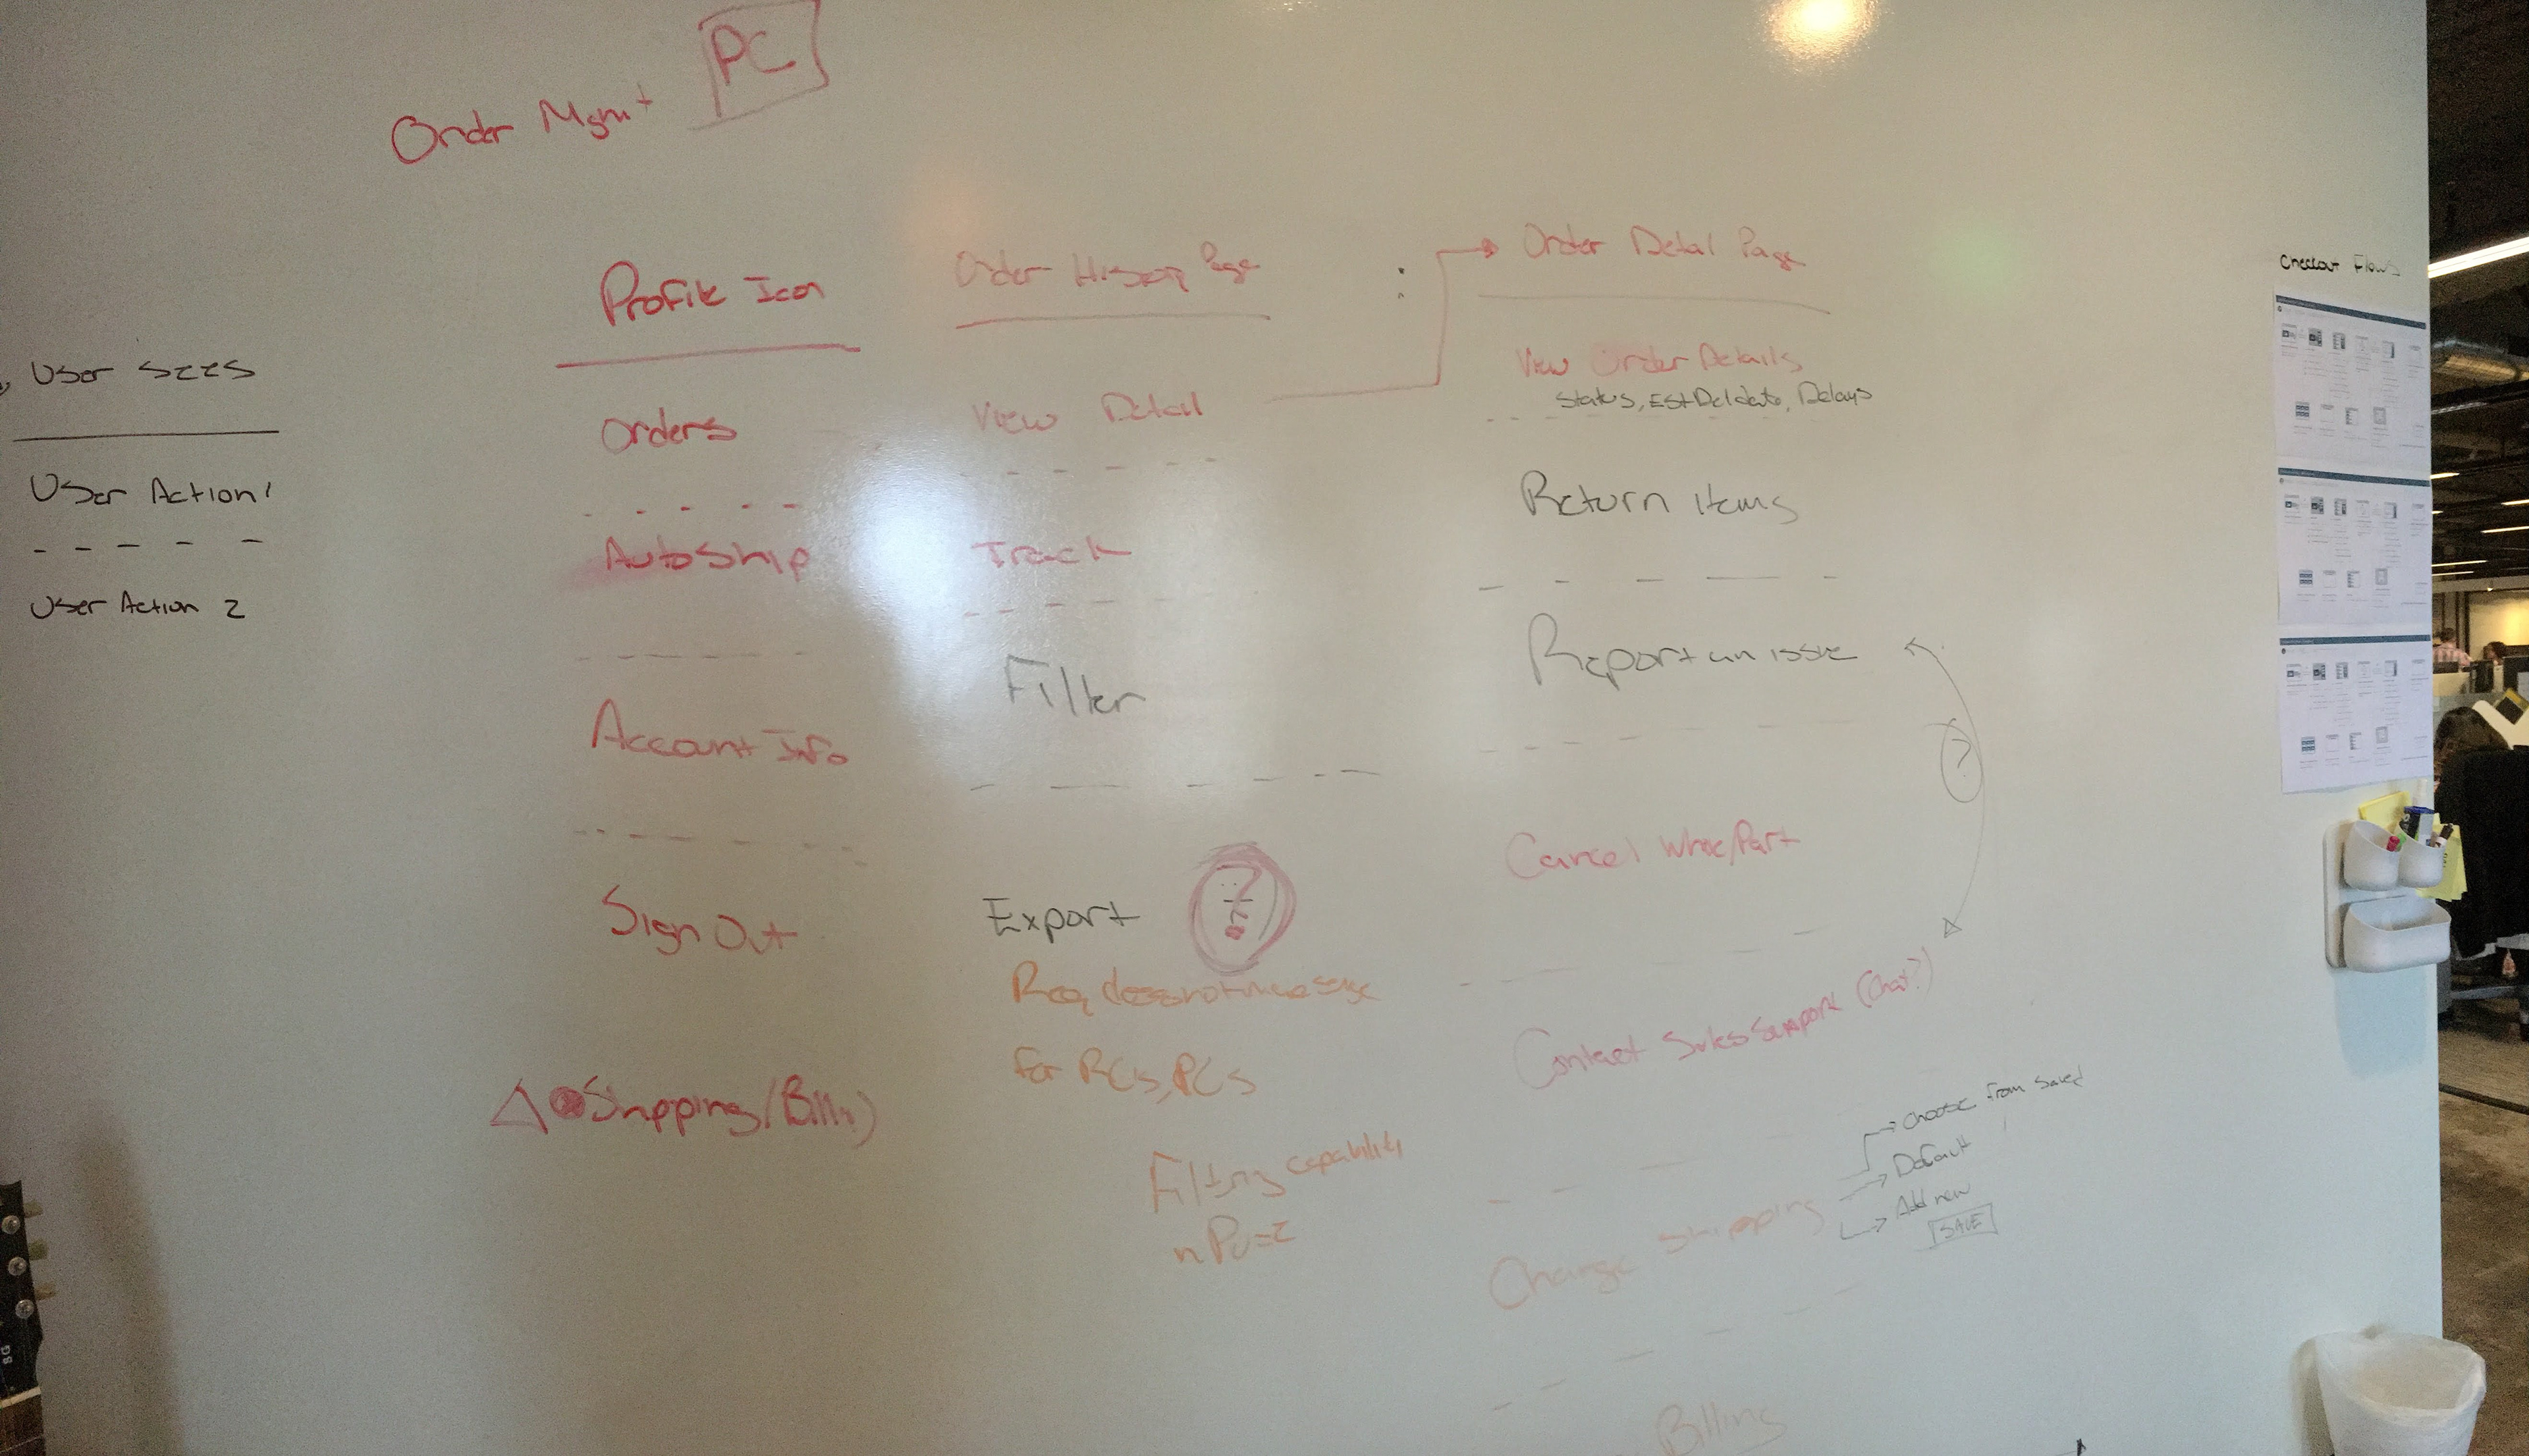 PC
Order Mgmt
User sees
User Action 1
User Action 2
Profile Icon
Orders
AutoShip
Account Info
Sign Out
Shipping/(Bill
Order History Page
View Detail
Track
Filter
Export
?
Req does not make sense
for RCs, PCs
Filtering capability
in
Order Detail Page
View Order Details
Status, Est Del date, Delays
Return items
Report an issue
?
Cancel Whole/Part
Contact Sales Support (Chat?)
Change Shipping
Choose from saved
Default
Add new
SAVE
Billing
Checkout Flows
SG